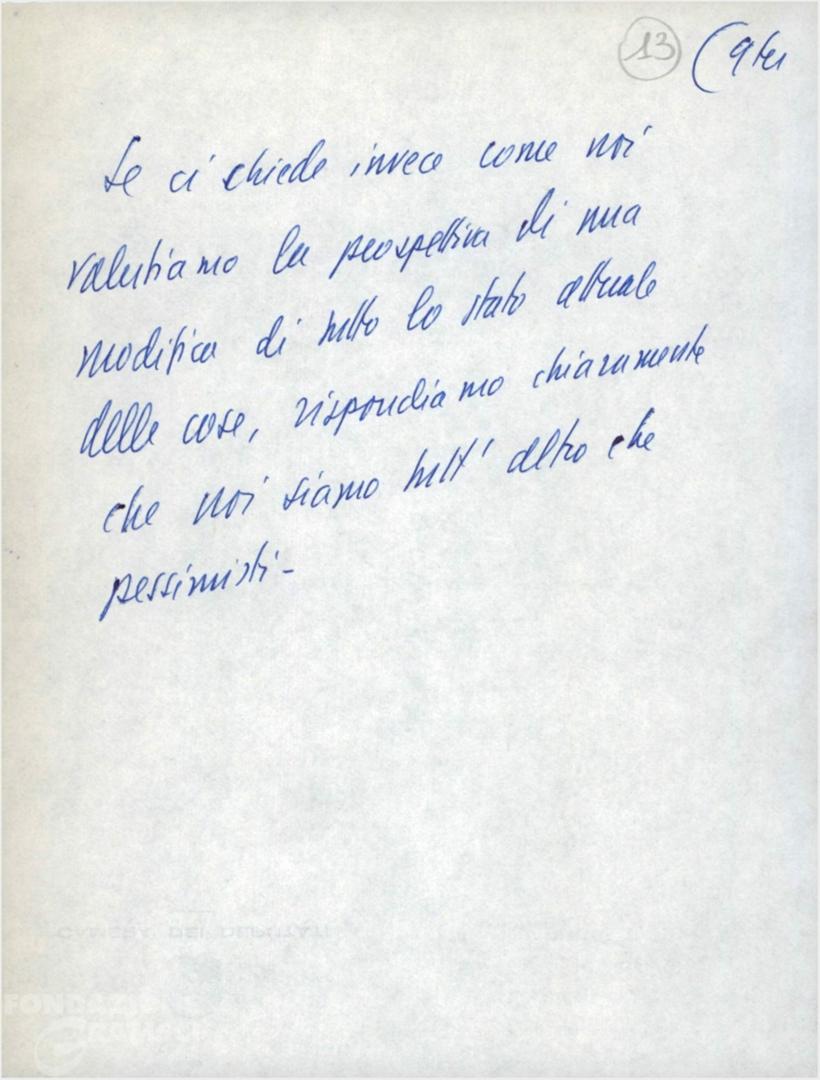 13 (9 ter
Se ci chiede invece come noi
valutiamo la prospettiva di una
modifica di tutto lo stato attuale
delle cose, rispondiamo chiaramente
che noi siamo tutt' altro che
pessimisti -
CAMERA DEI DEPUTATI
FONDAZIONE